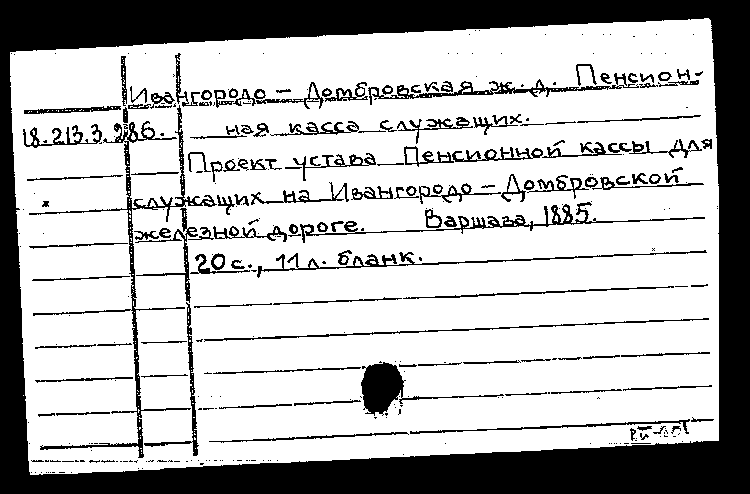 Ивангородо – Домбровская ж. д. Пенсион-
18.213.3.286. ная касса служащих.
Проект устава Пенсионной кассы для
служащих на Ивангородо – Домбровской
железной дороге. Варшава, 1885.
20 с., 11 л. бланк.